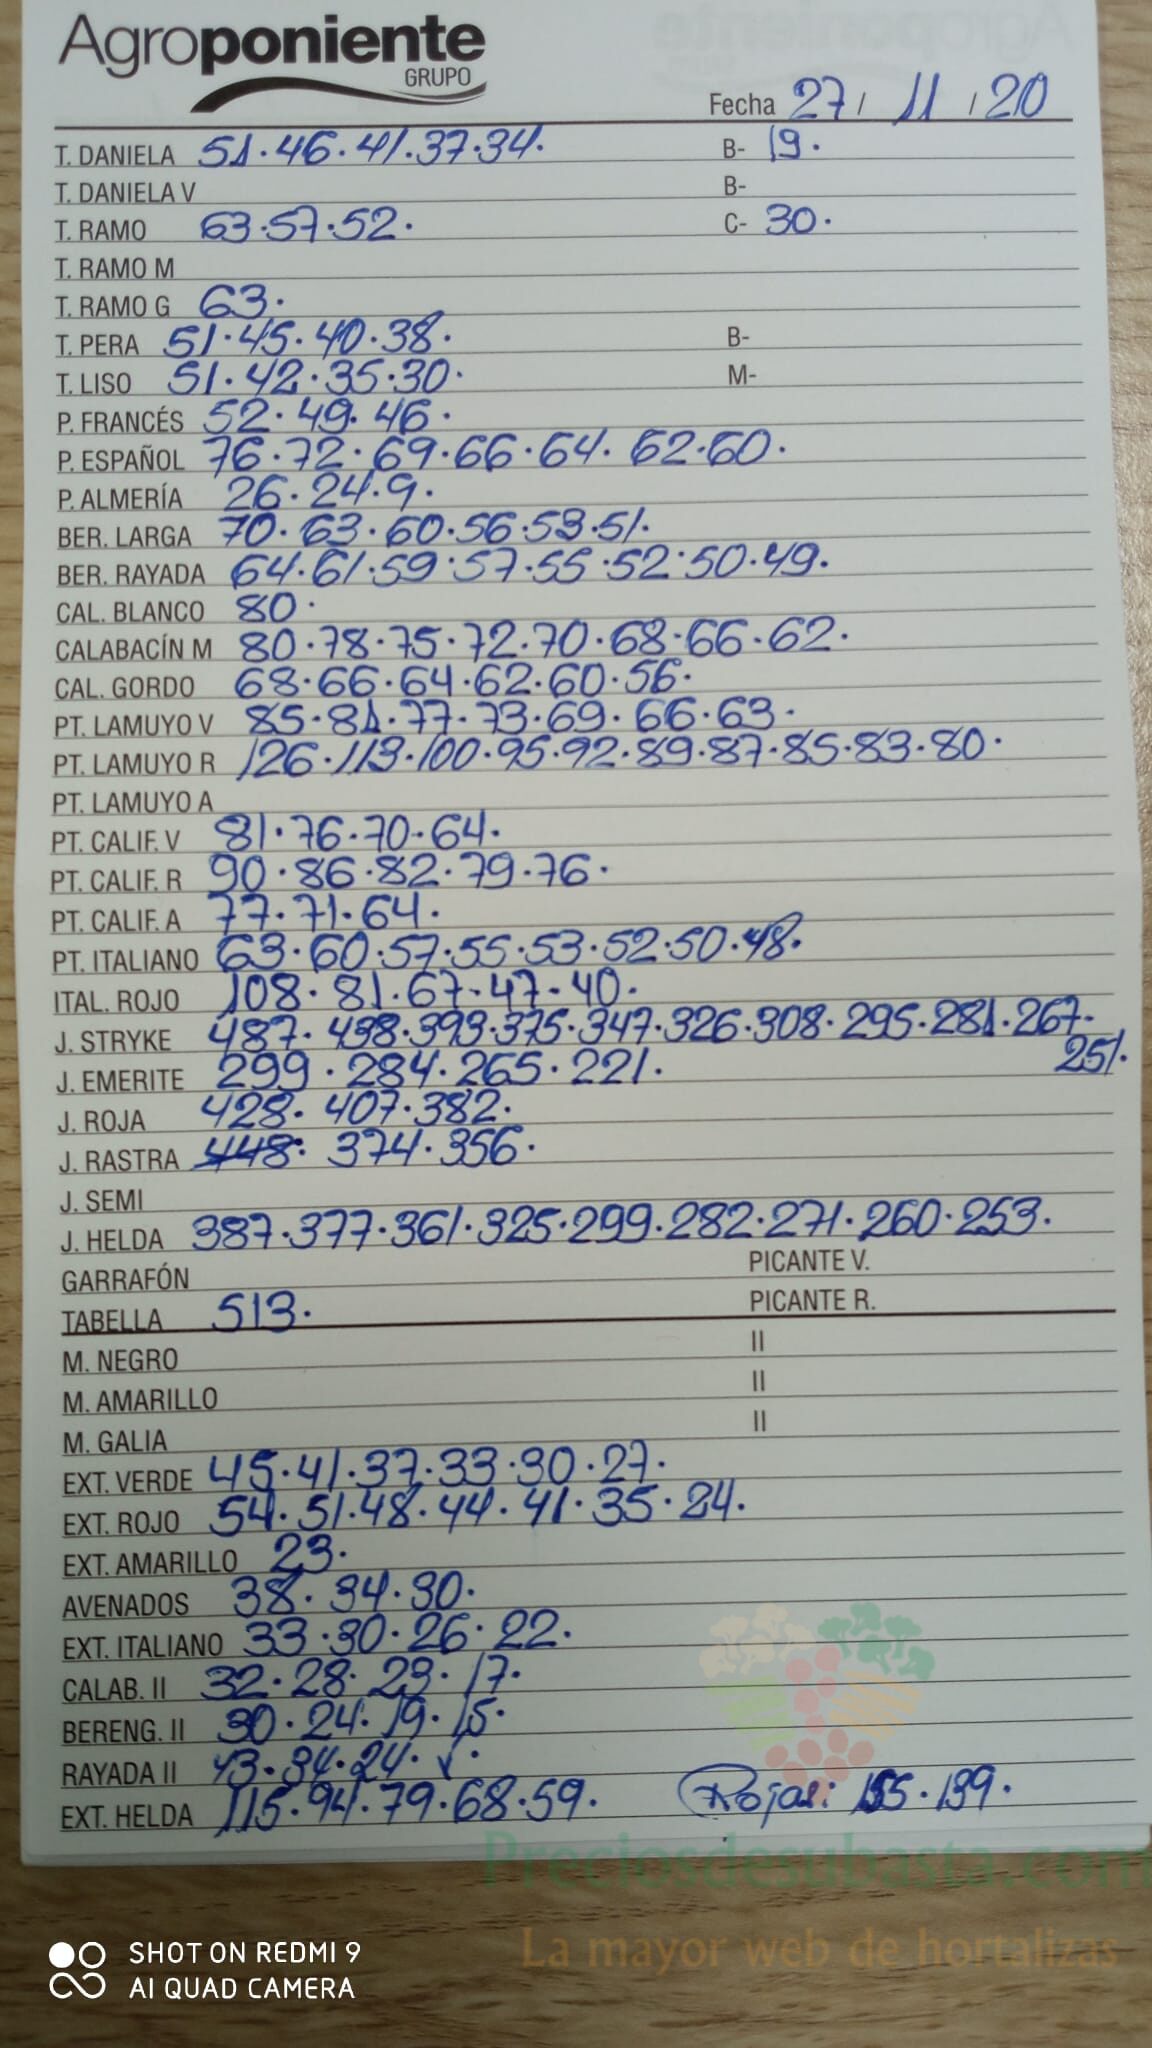 Agroponiente
GRUPO
Fecha 27 / 11 / 20
T. DANIELA 51·46·41·37·34. B- 19.
T. DANIELA V B-
T. RAMO 63·57·52. C- 30.
T. RAMO M
T. RAMO G 63.
T. PERA 51·45·40·38. B-
T. LISO 51·42·35·30. M-
P. FRANCÉS 52·49·46.
P. ESPAÑOL 76·72·69·66·64·62·60.
P. ALMERÍA 26·24·9.
BER. LARGA 70·63·60·56·53·51.
BER. RAYADA 64·61·59·57·55·52·50·49.
CAL. BLANCO 80.
CALABACÍN M 80·78·75·72·70·68·66·62.
CAL. GORDO 68·66·64·62·60·56.
PT. LAMUYO V 85·81·77·73·69·66·63.
PT. LAMUYO R 126·113·100·95·92·89·87·85·83·80.
PT. LAMUYO A
PT. CALIF. V 81·76·70·64.
PT. CALIF. R 90·86·82·79·76.
PT. CALIF. A 77·71·64.
PT. ITALIANO 63·60·57·55·53·52·50·48.
ITAL. ROJO 108·81·67·47·40.
J. STRYKE 487·438·393·375·347·326·308·295·281·267·
251.
J. EMERITE 299·284·265·221.
J. ROJA 428·407·382.
J. RASTRA 448· 374·356.
J. SEMI
J. HELDA 387·377·361·325·299·282·271·260·253.
GARRAFÓN PICANTE V.
TABELLA 513. PICANTE R.
M. NEGRO II
M. AMARILLO II
M. GALIA II
EXT. VERDE 45·41·37·33·30·27.
EXT. ROJO 54·51·48·44·41·35·24.
EXT. AMARILLO 23.
AVENADOS 38·34·30.
EXT. ITALIANO 33·30·26·22.
CALAB. II 32·28·23·17.
BERENG. II 30·24·19·15.
RAYADA II 43·34·24.
EXT. HELDA 115·94·79·68·59. Rojas: 155·139.
Preciosdesubasta.com
La mayor web de hortalizas
SHOT ON REDMI 9
AI QUAD CAMERA